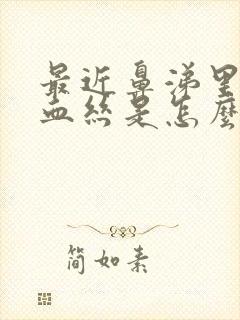 最近鼻涕里
血丝是怎麼
简如素